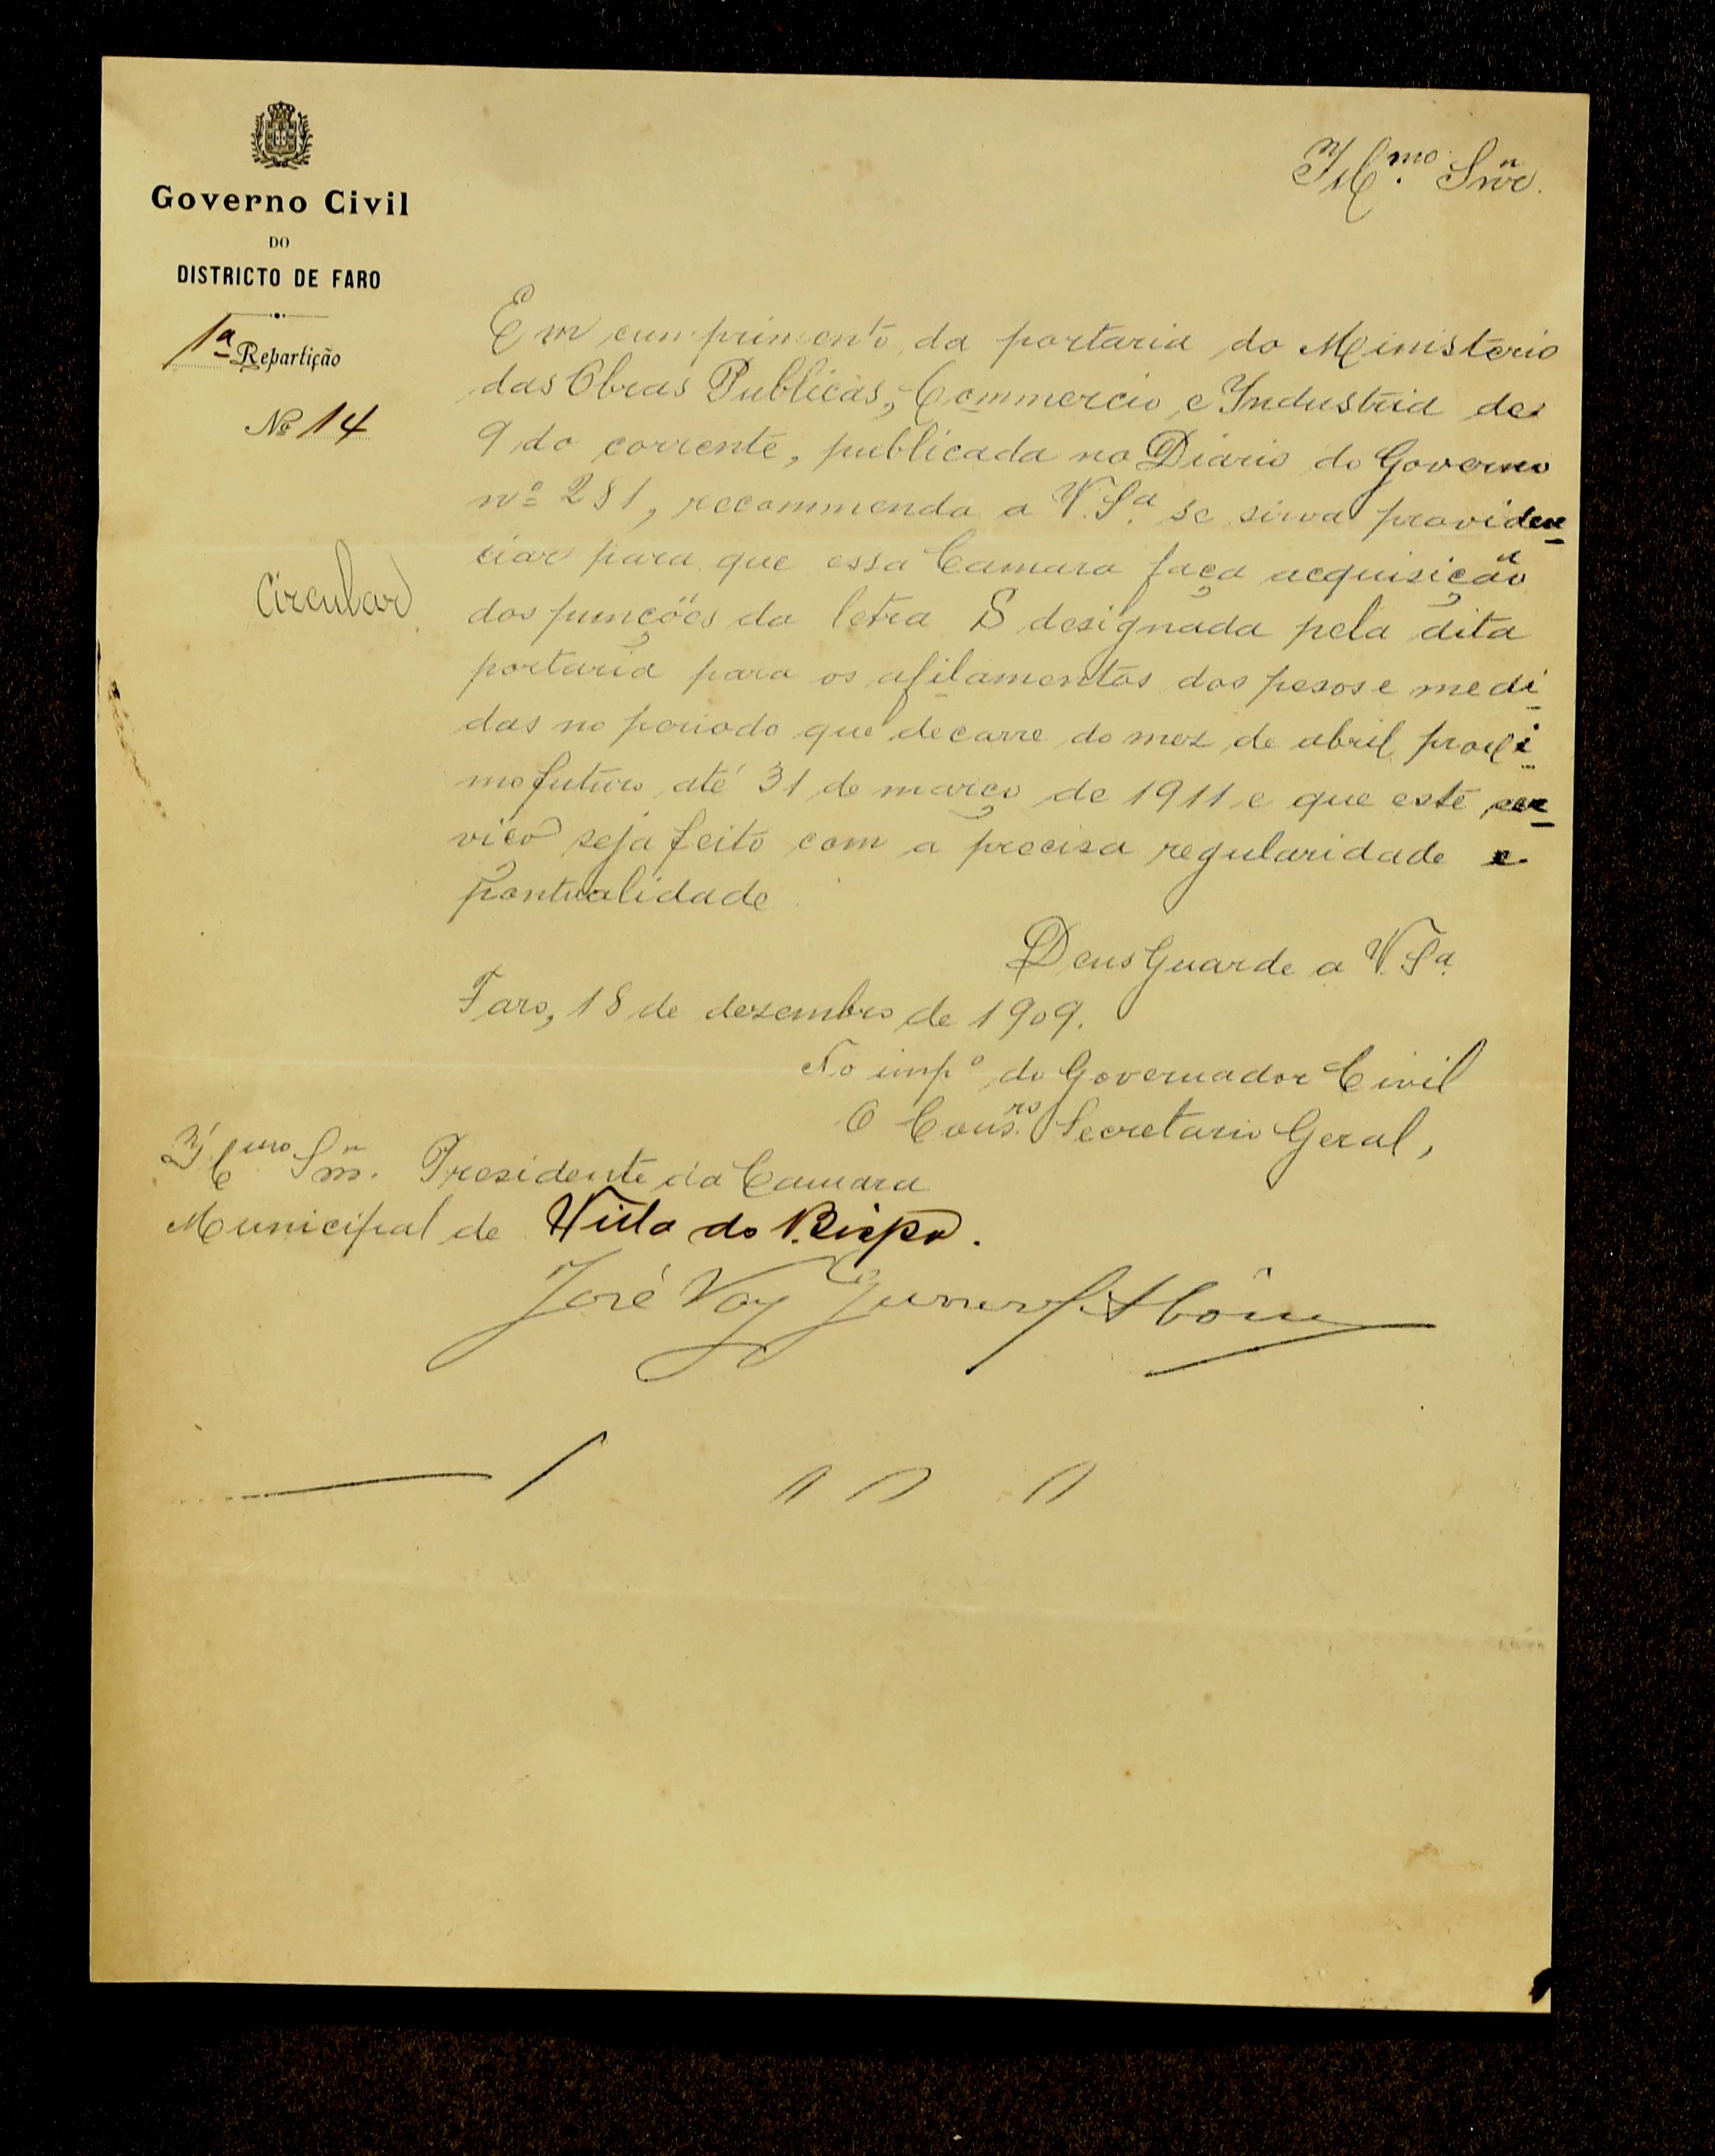 Governo Civil
DO
DISTRICTO DE FARO
1ª Repartição
Nº 14
Circular
Illmo. Snr.
Em cumprimento da portaria do Ministerio
das Obras Publicas, Commercio e Industria de
9 do corrente, publicada no Diario do Governo
nº 281, recommendo a V. Sª. se sirva providen
ciar para que essa Camara faça acquisição
dos funções da letra S designada pela dita
portaria para os afilamentos dos pesos e medi
das no periodo que decorre do mez de abril proxi
mo futuro até 31 de março de 1911 e que este ser
viço seja feito com a precisa regularidade e
pontualidade.
Deus Guarde a V. Sª.
Faro, 18 de dezembro de 1909.
No impº do Governador Civil
O Consro. Secretario Geral,
Illmo Snr. Presidente da Camara
Municipal de Villa do Bispo.
José Vaz